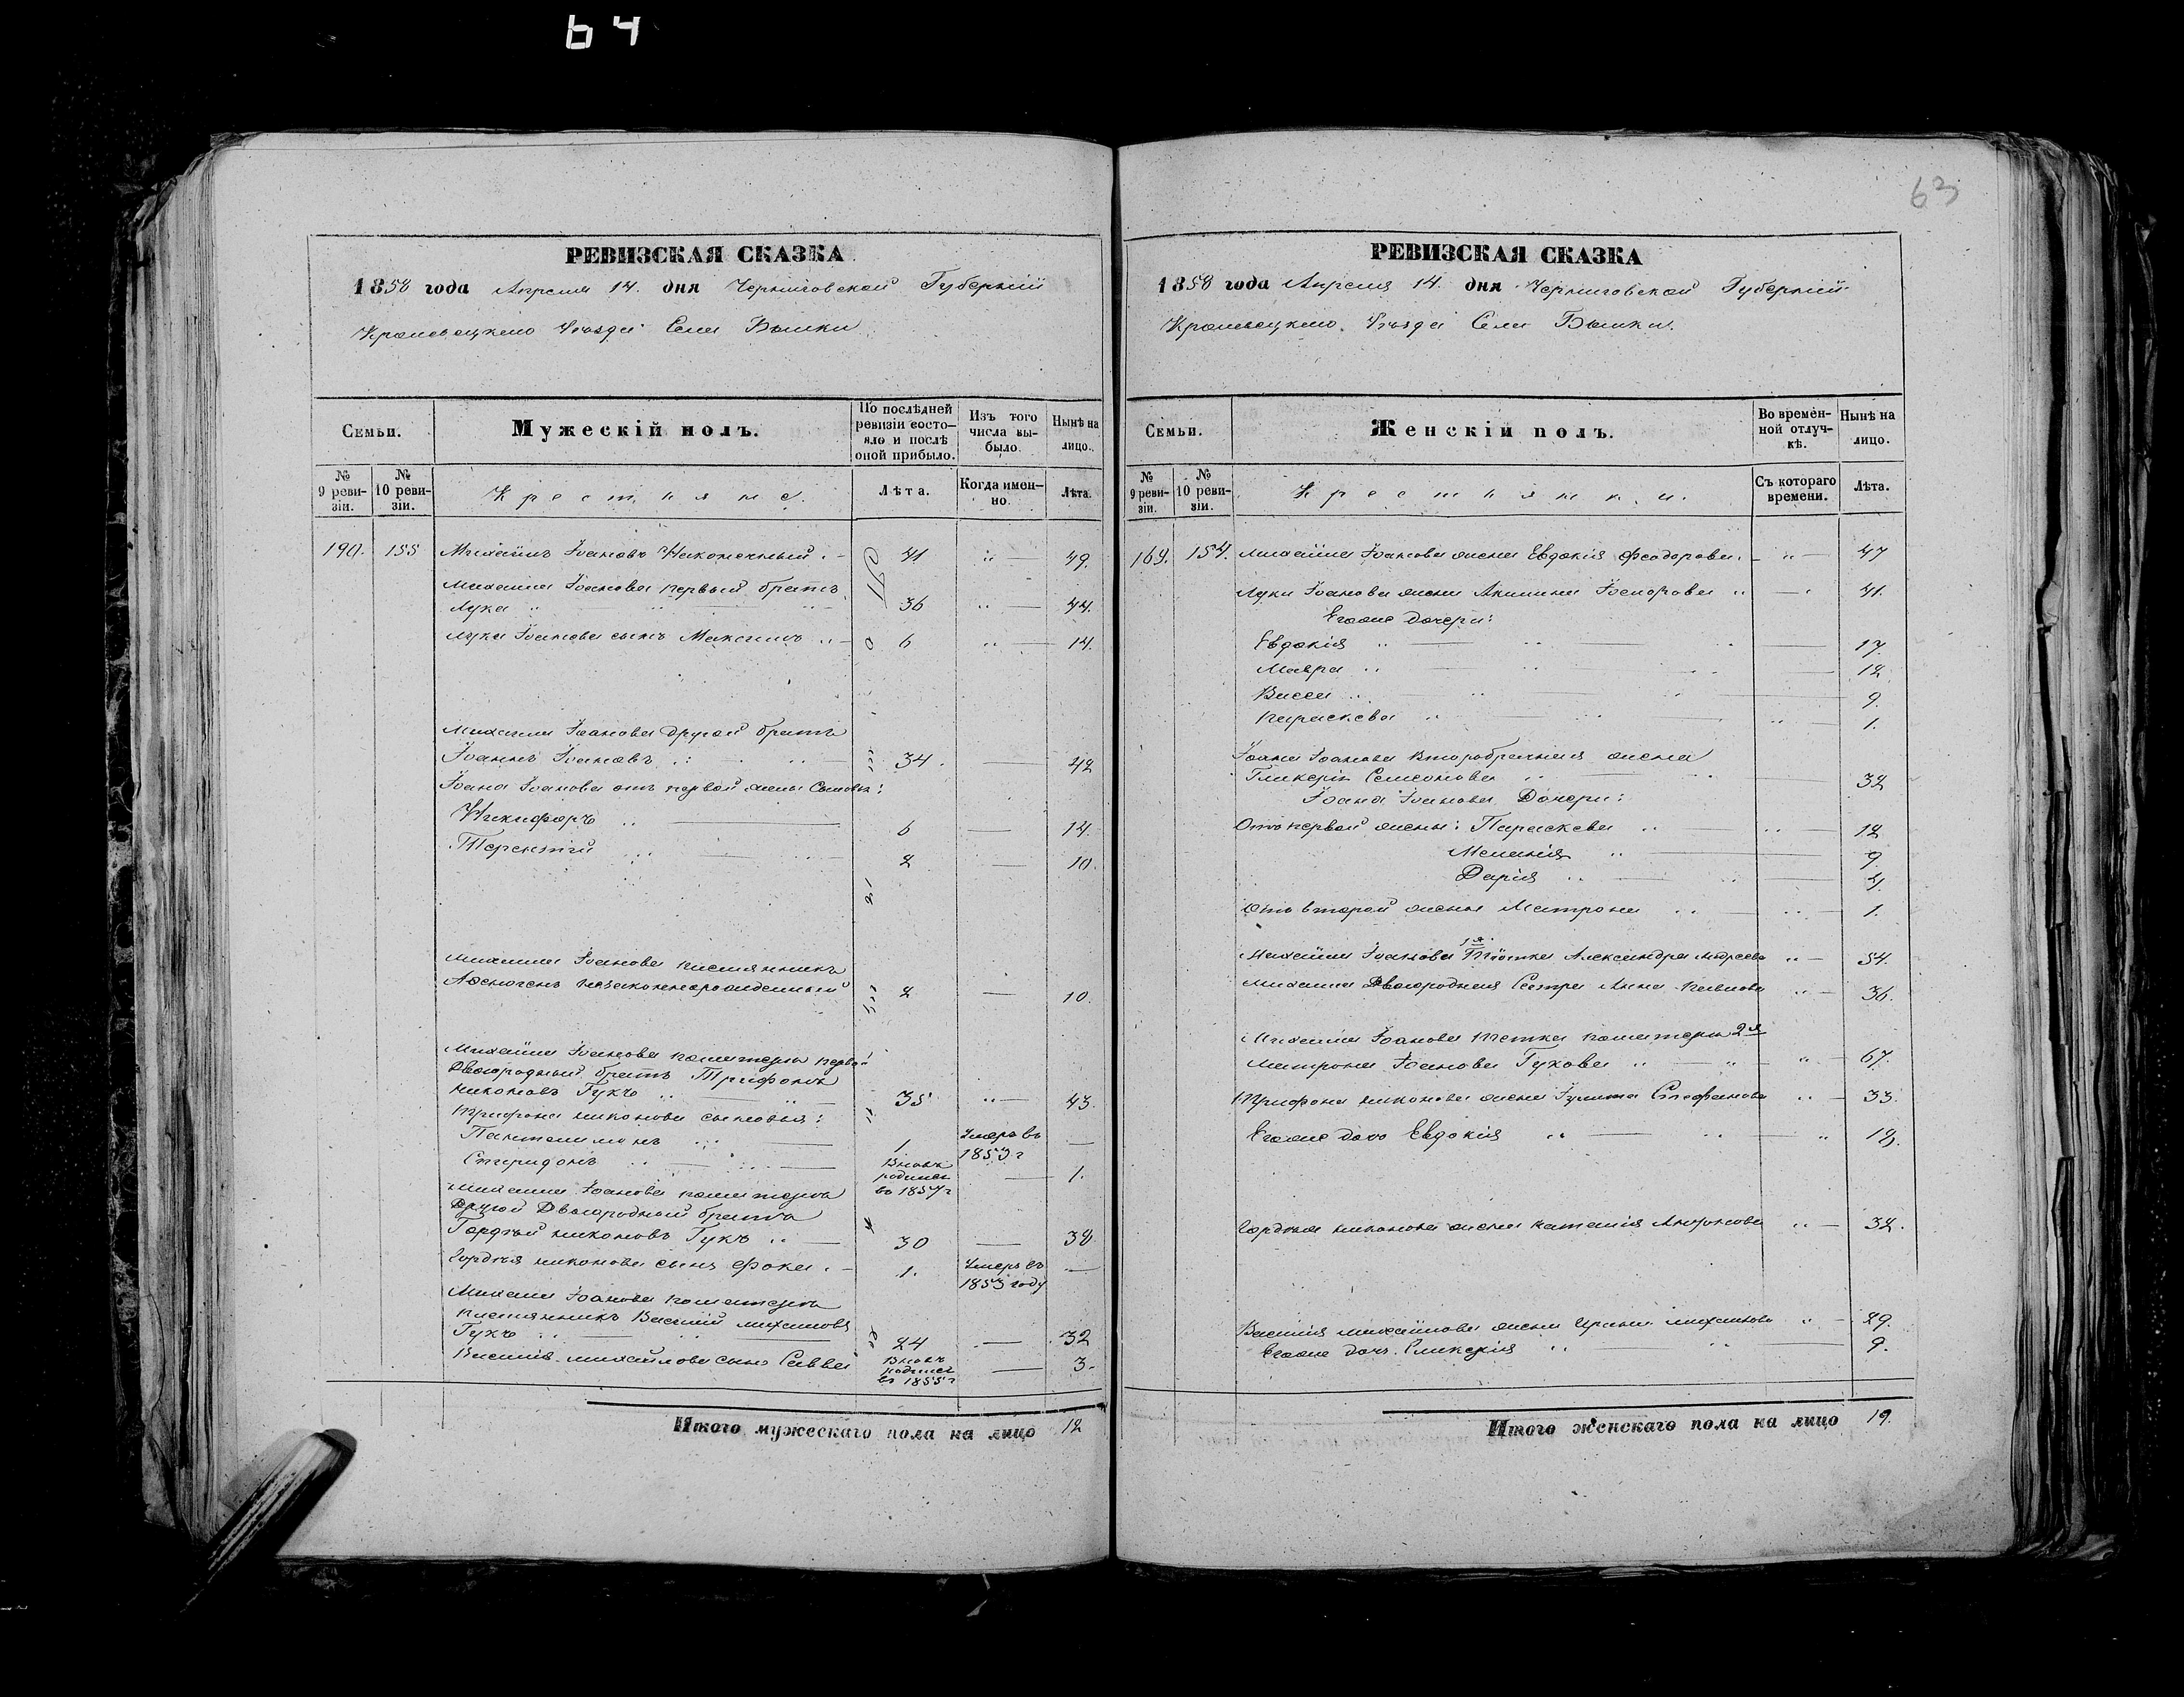 64
63
РЕВИЗСКАЯ СКАЗКА
1858 года Апреля 14. дня Черниговской Губерніи
Кролевецкого Уѣзда Села
Семьи.
Мужескій полъ.
По послѣдней ревизіи состо-
яло и послѣ
оной прибыло.
Изъ того
числа вы-
было.
Нынѣ на
лицо.
№
9 реви-
зіи.
№
10 реви-
зіи.
Крестьяне.
Лѣта.
Когда имен-
но.
Лѣта.
190. 155 Михаилъ Іоановъ Наконечный 41 49.
Михаила Іоанова первый братъ
Лука 36 44.
Луки Іоанова сынъ Максимъ 6 14.
Михаила Іоанова другой братъ
Іоаннъ Іоановъ 34. 42
Іоана Іоанова отъ первой жены Сыновья:
Никифоръ 6 14.
Терентій 2 10.
Михаила Іоанова племянникъ
незаконнорожденный 2 10.
Михаила Іоанова по матери первой
Двоюродный братъ Трифонъ
Никоновъ Гукъ 35 43.
Трифона Никонова сыновья:
Пантелимонъ 1 Умеръ въ
1853 г
Спиридонъ Вновь
родился
въ 1857 г 1.
Михаила Іоанова по матери
Другой Двоюродный братъ
Гордѣй Никоновъ Гукъ 30 38
Гордѣя Никонова сынъ Фока 1. Умеръ въ
1853 году
Михаила Іоанова по матери
племянникъ Василій Михаиловъ
Гукъ 24 32
Василія Михайлова сынъ Савва Вновь
родился
въ 1855 г 3.
Итого мужескаго пола на лицо 12
РЕВИЗСКАЯ СКАЗКА
1858 года Апреля 14. дня Черниговской Губерніи
Кролевецкого Уѣзда Села
Семьи.
Женскій полъ.
Во времен-
ной отлуч-
кѣ.
Нынѣ на
лицо.
№
9 реви-
зіи.
№
10 реви-
зіи.
Крестьянки.
Съ котораго
времени.
Лѣта.
154. Михаила Іоанова жена Евдокія Феодорова 47
Луки Іоанова жена Акилина 41.
Егоже дочери:
Евдокія 17.
Мавра 12
Васса 9.
Параскева 1.
Іоана Іоанова второбрачная жена
Гликерія Семеонова 32
Іоана Іоанова Дочери:
Отъ первой жены: Параскева 12
Меланія 9
Дарія 4.
Отъ второй жены Матрона 1.
Михаила Іоанова 1я Тіотка Александра 54.
Михаила Двоюродная Сестра Анна Павлова 36.
Михаила Іоанова тетка по матери 2я
Матрона Іоанова Гукова 67.
Трифона Никонова жена Іулита Стефанова 33.
Егоже дочь Евдокія 12.
Гордѣя Никонова жена Наталія 32.
Василія Михайлова жена Ирина 29.
Егоже дочь Гликерія 9.
Итого женскаго пола на лицо 19.